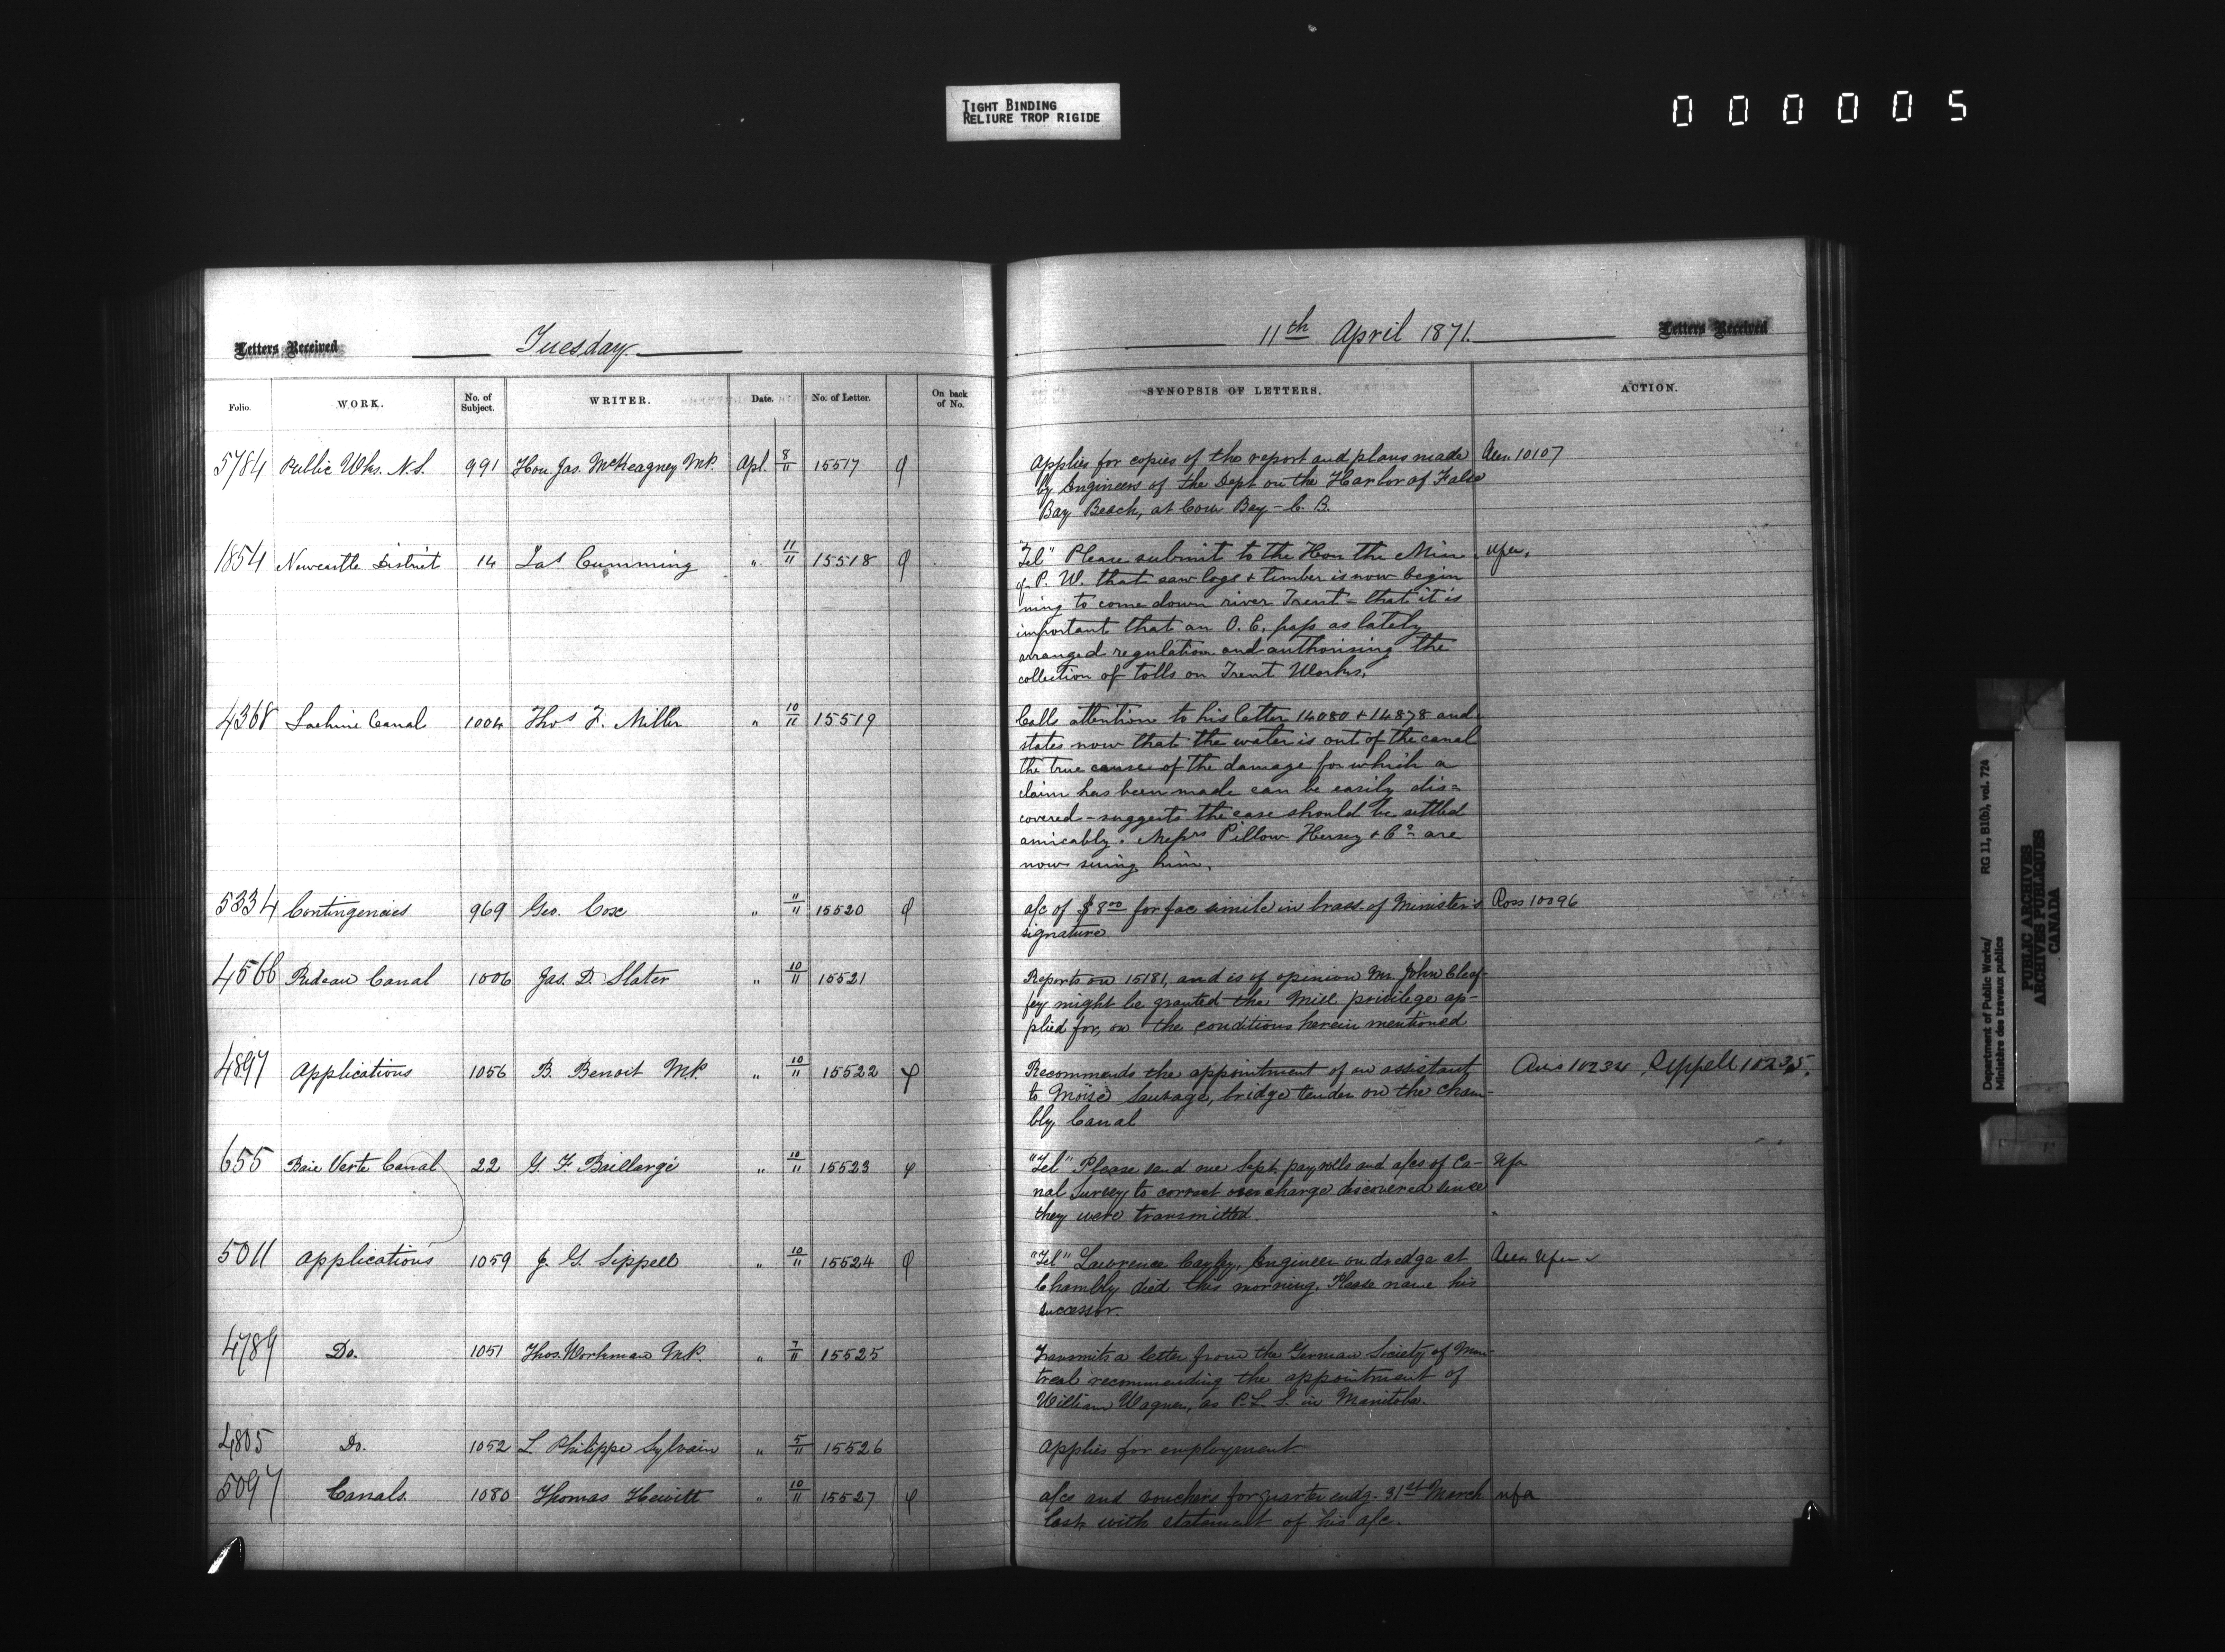 TIGHT BINDING
RELIURE TROP RIGIDE
000005
Letters Received
Tuesday
11th April 1871.
Letters Received
Folio.
WORK.
No. of Subject.
WRITER.
Date.
No. of Letter.
On back of No.
SYNOPSIS OF LETTERS.
ACTION.
5784 Public Wks. N.S. 991 Hon Jas. McKeagney MP. Apl. 8/11 15517 φ
Applies for copies of the report and plans made
by Engineers of the Dept on the Harbor of False
Bay Beach, at Cow Bay - C. B.
Ans 10107
1854 Newcastle District 14 Jas Cumming " 11/11 15518 φ
"Tel" Please submit to the Hon the Min
of P. W. that saw logs + timber is now begin
ning to come down river Trent - that it is
important that an O. C. pass as lately
arranged regulation and authorising the
collection of tolls on Trent Works.
4368 Lachine Canal 1004 Thos F. Miller " 10/11 15519
Calls attention to his letter 14080 + 14878 and
states now that the water is out of the canal
the true cause of the damage for which a
claim has been made can be easily dis=
covered - suggests the case should be settled
amicably. Messrs Pillow Hersey + Co are
now suing him.
5334 Contingencies 969 Geo. Cox " 11/11 15520 φ
a/c of $8 00 for fac simile in brass of Minister's
signature
Ross 10096
4566 Rideau Canal 1006 Jas. D. Slater " 10/11 15521
Reports on 15181, and is of opinion Mr. John Cleaf-
fey might be granted the Mill privilege ap-
plied for, on the conditions herein mentioned
4897 Applications 1056 B. Benoit M.P. " 10/11 15522 φ
Recommends the appointment of an assistant
to Moïse Sauvage, bridge tender on the Cham-
bly Canal
Ans 10234 Sippell 10235.
655 Baie Verte Canal 22 G. F. Baillargé " 10/11 15523 φ
"Tel" Please send me Sept. pay rolls and a/cs of Ca-
nal Survey to correct overcharge discovered since
they were transmitted.
Nfa
5011 Applications 1059 J. G. Sippell " 10/11 15524 φ
"Tel" Lawrence Cayley, Engineer on dredge at
Chambly died this morning. Please name his
successor.
Ans
4789 Do. 1051 Thos. Workman M.P. " 7/11 15525
Transmits a letter from the German Society of Mon-
treal recommending the appointment of
William Wagner, as P. L. S. in Manitoba.
4805 Do. 1052 L Philippe Sylvain " 5/11 15526
Applies for employment.
5097 Canals. 1080 Thomas Hewitt " 10/11 15527 φ
a/cs and vouchers for quarter endg. 31st March
last, with statement of his a/c.
nfa
Department of Public Works/ RG 11, B1(b), vol. 724
Ministère des travaux publics
PUBLIC ARCHIVES
ARCHIVES PUBLIQUES
CANADA